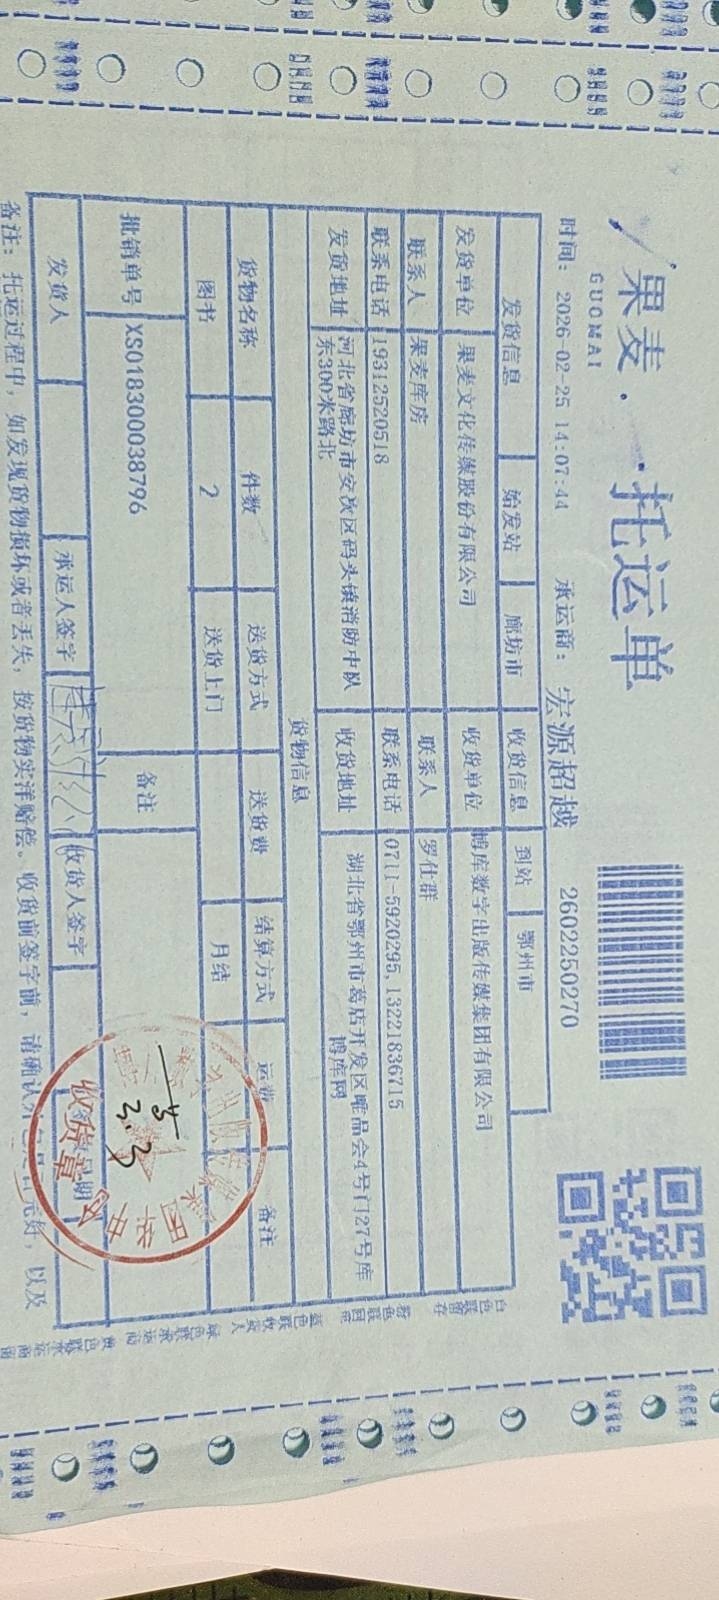 果麦·托运单
GUOMAI
时间: 2026-02-25 14:07:44 承运商: 宏源超越 2602250270
发货信息 始发站 廊坊市 收货信息 到站 鄂州市
发货单位 果麦文化传媒股份有限公司 收货单位 博库数字出版传媒集团有限公司
联系人 果麦库房 联系人 罗仕群
联系电话 19312520518 联系电话 0711-5920295,13221836715
发货地址 河北省廊坊市安次区码头镇消防中队东300米路北 收货地址 湖北省鄂州市葛店开发区唯品会4号门27号库博库网
货物信息
货物名称 件数 送货方式 送货费 结算方式 运费 备注
图书 2 送货上门 月结
批销单号 XS018300038796 备注
发货人 承运人签字 收货人签字
备注: 托运过程中, 如发现货物损坏或者丢失, 按货物实洋赔偿。收货前签字前, 请确认外包是否完好, 以及
白色联留存
粉色联回单
蓝色联收货人
绿色联承运商
黄色联承运商
收货章